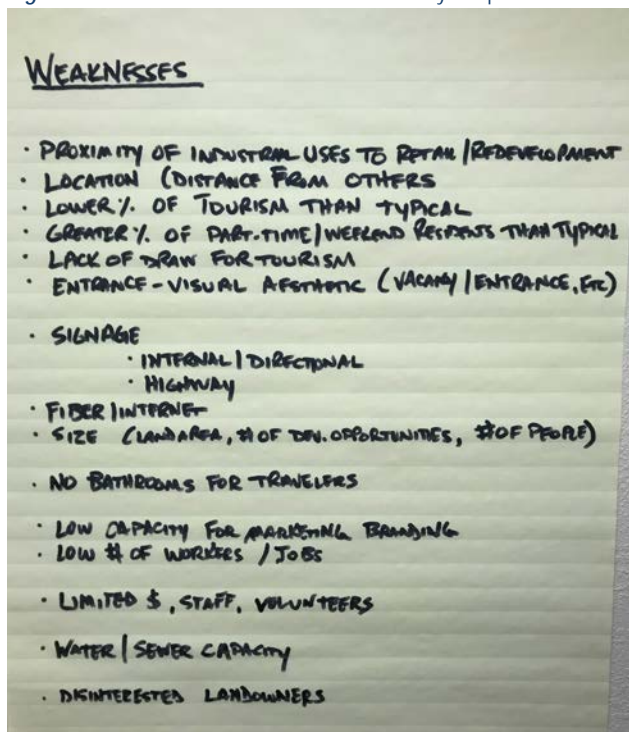 WEAKNESSES
· PROXIMITY OF INDUSTRIAL USES TO RETAIL/REDEVELOPMENT
· LOCATION (DISTANCE FROM OTHERS
· LOWER % OF TOURISM THAN TYPICAL
· GREATER % OF PART-TIME/WEEKEND RESIDENTS THAN TYPICAL
· LACK OF DRAW FOR TOURISM
· ENTRANCE - VISUAL AESTHETIC (VACANCY/ENTRANCE, ETC)
· SIGNAGE
· INTERNAL/DIRECTIONAL
· HIGHWAY
· FIBER/INTERNET
· SIZE (LAND AREA, # OF DEV. OPPORTUNITIES, # OF PEOPLE)
· NO BATHROOMS FOR TRAVELERS
· LOW CAPACITY FOR MARKETING BRANDING
· LOW # OF WORKERS / JOBS
· LIMITED $, STAFF, VOLUNTEERS
· WATER/SEWER CAPACITY
· DISINTERESTED LANDOWNERS